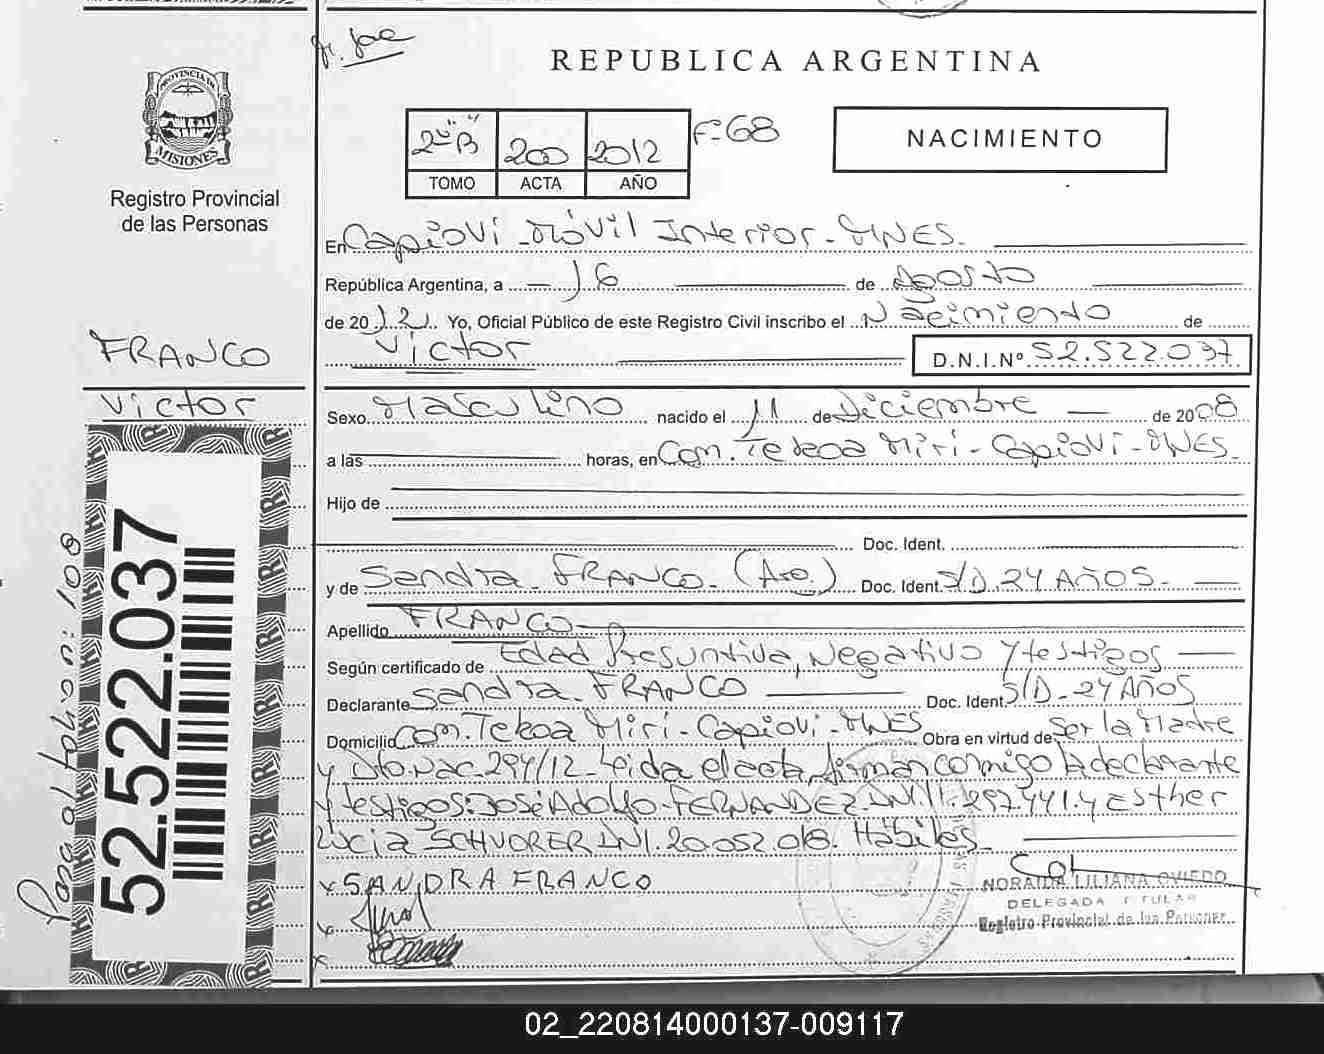 REPUBLICA ARGENTINA
PROVINCIA DE
MISIONES
Registro Provincial
de las Personas
2º "B" 200 2012 Fº 68
TOMO ACTA AÑO
NACIMIENTO
En Capioví - Móvil Interior - MNES.
República Argentina, a 16 de Agosto
de 2012. Yo, Oficial Público de este Registro Civil inscribo el Nacimiento de
Victor D.N.I.Nº 52.522.037
FRANCO
Victor
Sexo Masculino nacido el 11 de Diciembre de 2008
a las horas, en Com. Tekoa Mirí - Capioví - MNES.
Hijo de
Doc. Ident.
y de Sandra FRANCO. (Arg.) Doc. Ident. S/D. 24 AÑOS.
Apellido FRANCO
Según certificado de Edad Presuntiva, Negativo y testigos
Declarante Sandra FRANCO Doc. Ident. S/D - 24 AÑOS
Domicilio Com. Tekoa Mirí - Capioví - MNES Obra en virtud de Ser la Madre
y Dto. Nac. 294/12 - Leida el acta, firman conmigo la declarante
y testigos: José Adolfo FERNANDEZ DNI. 11.297.441. y Esther
Lucia SCHVORER DNI. 20.052.018. Hábiles.
x SANDRA FRANCO
NORAIDA LILIANA OVIEDO
DELEGADA TITULAR
Registro Provincial de las Personas
52.522.037
Pasa al folio nº: 108
02_220814000137-009117